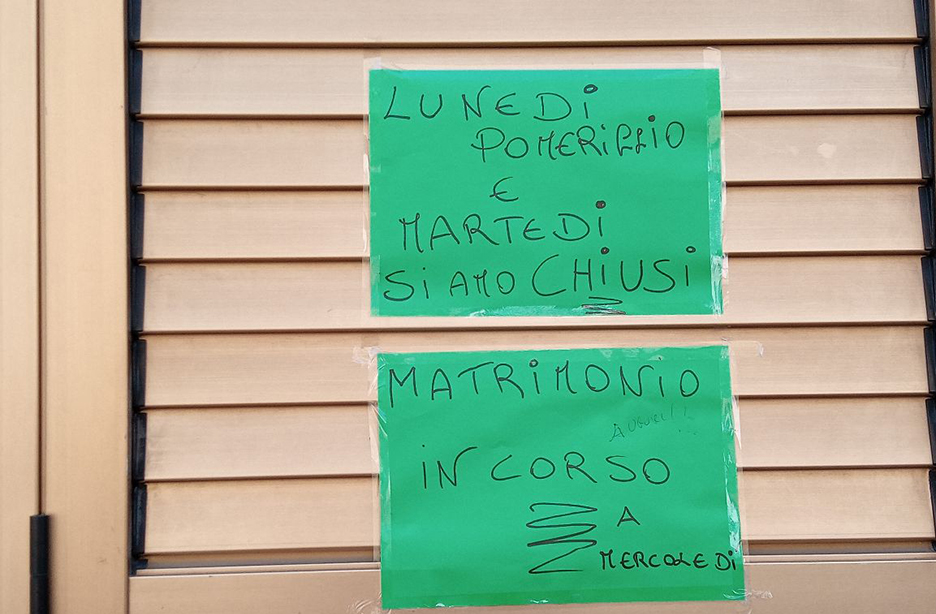 LUNEDì
POMERIGGIO
E
MARTEDì
SiAMO CHiUSi
MATRiMONiO
iN CORSO
A
MERCOLEDì